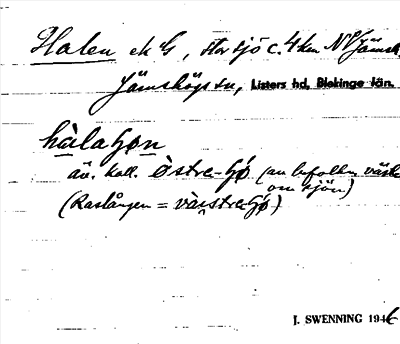 Halen ek G, stor sjö c. 4 km NV Jämsh
Jämshögs sn, Listers hd, Blekinge län.
hàlaGøn
äv. kall. òstre-Gǿ (av befolkn. väster om sjön)
(Raslången = vä̀stre-Gǿ)
J. SWENNING 1946